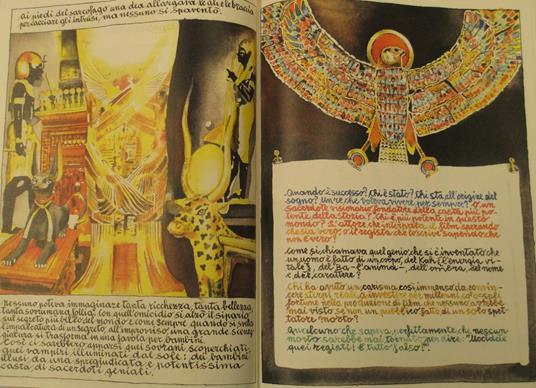 Ai piedi del sarcofago una dea allargava le ali e le braccia
per cacciare gli intrusi, ma nessuno si spaventò.
Nessuno poteva immaginare tanta ricchezza, tanta bellezza,
tanta sontuosa follia. Con quell'omicidio si alzò il sipario
sul segreto più bello del mondo e come sempre quando si snida
l'impalcatura di un segreto, all'improvviso una grande scienza
funebre si trasformò in una favola per bambini.
Così ci sarebbero apparsi quei sovrani scoperchiati,
quei vampiri illuminati dal sole: dei bambini
illusi da una spregiudicata e potentissima
casta di sacerdoti geniali.
Quando è successo? Chi è stato? Chi sta all'origine del
sogno? Un re che voleva vivere per sempre? O un
sacerdote visionario fondatore della casta più po-
tente della storia? Chi è più potente in questo
mondo? L'attore che interpreta il film sperando
che sia vero o il regista che lo scrive sapendo che
non è vero?
Come si chiamava quel genio che si è inventato che
un uomo è fatto di un corpo, del Kah (l'energia vi-
tale), del Ba (l'anima), dell'ombra, del nome
e del carattere?
Chi ha avuto un carisma così immenso da con-
vincere stirpi reali a investire per millenni colossali
fortune nella produzione di film che nessuno avrebbe
mai visto se non un pubblico fatto di un solo spet-
tatore morto?
Qualcuno che sapeva perfettamente che nessun
morto sarebbe mai tornato per dire: "Uccidete
quei registi! È tutto falso!..."